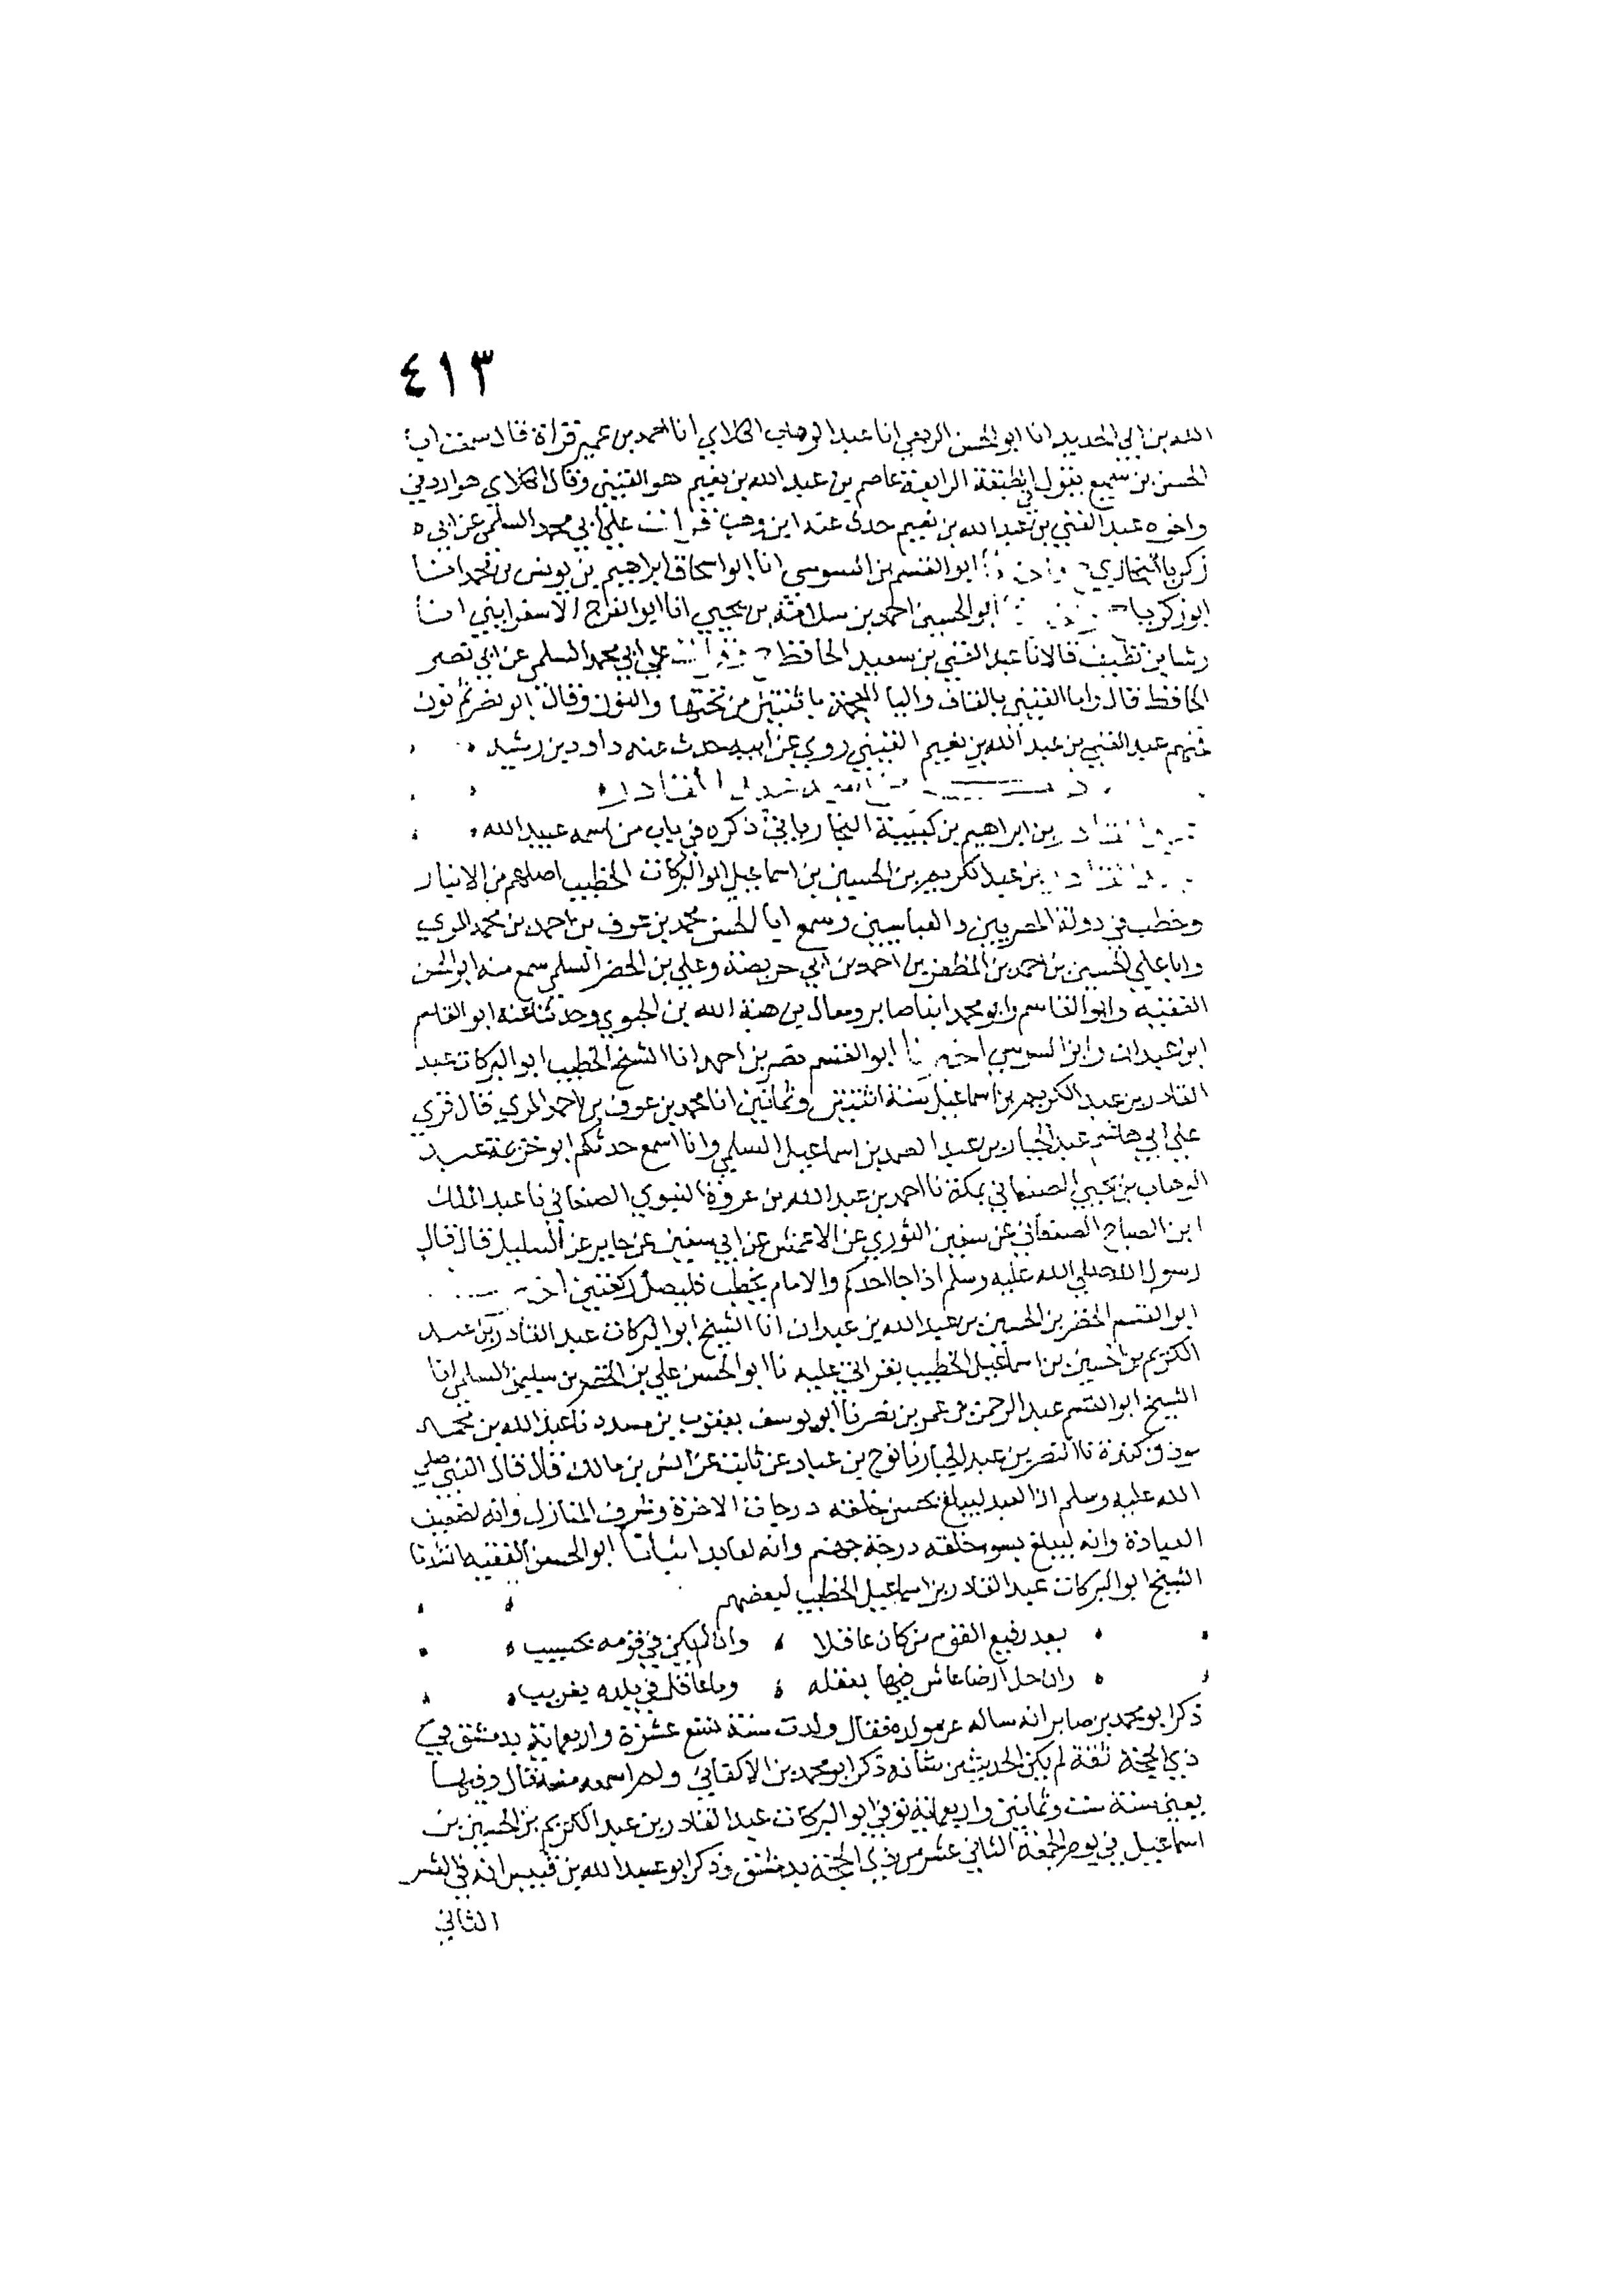 ٤١٣
الله بن ابي الحديد انا ابو الحسن الربعي انا عبد الوهاب الكلابي انا احمد بن عمير قراة قال سمعت ابا
الحسن بن سميع يقول في الطبقة الرابعة عاصم بن عبد الله بن نعيم هو القيني وقال الكلابي هو اردني
واخوه عبد الغني بن عبد الله بن نعيم حدث عنه ابن وهب قرات علي ابي محمد السلمي عن ابي
زكريا البخاري ابو القسم بن السوسي انا ابو اسحاق ابراهيم بن يونس بن محمد انا
ابو زكريا ابو الحسين احمد بن سلامة بن يحيي انا ابو الفرج الاسفرايني انا
رشا بن نظيف قالا نا عبد الغني بن سعيد الحافظ قرات علي ابي محمد السلمي عن ابي نصر
الحافظ قال واما القيني بالقاف واليا المعجمة باثنتين من تحتها والنون وقال ابو نصر ثم نون
منهم عبد الغني بن عبد الله بن نعيم القيني روي عن ابيه حدث عنه داود بن رشيد
عبد القادر
بن ابراهيم بن كبيبة النجار ياتي ذكره في باب من اسمه عبيد الله
بن عبد الكريم بن الحسين بن اسماعيل ابو البركات الخطيب اصلهم من الانبار
وخطب في دولة المصريين والعباسيين وسمع ابا الحسن محمد بن عوف بن احمد بن محمد المري
وابا علي الحسين بن احمد بن المظفر بن احمد بن ابي حريصة وعلي بن الخضر السلمي سمع منه ابو الحسن
الفقيه وابو القاسم وابو محمد ابنا صابر ومعالي بن هبة الله بن الحبوبي وحدثنا عنه ابو القاسم
ابن عبدان وابن السوسي اخبرنا ابو القسم نصر بن احمد انا الشيخ الخطيب ابو البركات عبد
القادر بن عبد الكريم بن اسماعيل سنة اثنتين وثمانين انا محمد بن عوف بن احمد المري قال قري
علي ابي هاشم عبد الجبار بن عبد الصمد بن اسماعيل السلمي وانا اسمع حدثكم ابو خزعة عبد
الوهاب بن يحيي الصنعاني بمكة نا احمد بن عبد الله بن عروة النبوي الصنعاني نا عبد الملك
ابن الصباح الصنعاني عن سفين الثوري عن الاعمش عن ابي سفين عن جابر عن السليل قال قال
رسول الله صلي الله عليه وسلم اذا جا احدكم والامام يخطب فليصل ركعتين
ابو القسم الخضر بن الحسين بن عبد الله بن عبدان انا الشيخ ابو البركات عبد القادر بن عبد
الكريم بن الحسين بن اسماعيل الخطيب بقراتي عليه نا ابو الحسن علي بن الخضر بن سليمن السلمي انا
الشيخ ابو القسم عبد الرحمن بن عمر بن نصر نا ابو يوسف يعقوب بن مسدد نا عبد الله بن محمد
نا النضر بن عبد الجبار نا نوح بن عباد عن ثابت عن انس بن مالك قال قال النبي صلي
الله عليه وسلم ان العبد ليبلغ بحسن خلقه درجات الاخرة وشرف المنازل وانه لضعيف
العبادة وانه ليبلغ بسوء خلقه درجة جهنم وانه لعابد انبانا ابو الحسن الفقيه انشدنا
الشيخ ابو البركات عبد القادر بن اسماعيل الخطيب لبعضهم
يعد رفيع القوم من كان عاقلا وان لم يكن في قومه بحسيب
وان حل ارضا عاش فيها بعقله وما عاقل في بلده بغريب
ذكر ابو محمد بن صابر انه ساله عن مولده فقال ولدت سنة تسع عشرة واربعمائة بدمشق في
ذي الحجة ثقة لم يكن الحديث من شانه ذكر ابو محمد بن الاكفاني ولم اسمعه منه قال وفيها
يعني سنة ست وثمانين واربعمائة توفي ابو البركات عبد القادر بن عبد الكريم بن الحسين بن
اسماعيل في يوم الجمعة الثاني عشر من ذي الحجة بدمشق وذكر ابو عبد الله بن قبيس انه في العشر
الثاني